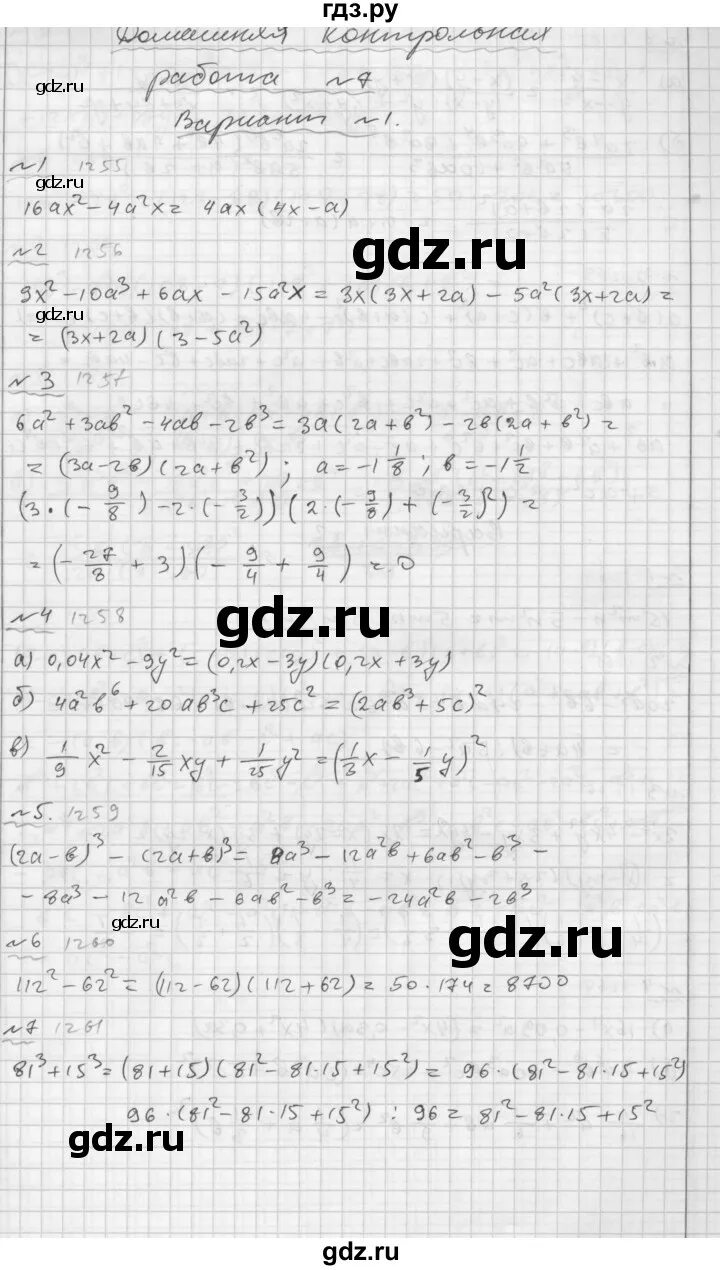 гдз.ру
Домашняя контрольная
gdz.ru
работа №7
Вариант №1.
№1 1255
gdz.ru
16ax² - 4a²x = 4ax(4x - a)
gdz.ru
№2 1256
9x² - 10a³ + 6ax - 15a²x = 3x(3x + 2a) - 5a²(3x + 2a) =
gdz.ru
= (3x + 2a)(3 - 5a²)
№3 1257
6a² + 3aв² - 4aв - 2в³ = 3a(2a + в²) - 2в(2a + в²) =
= (3a - 2в)(2a + в²); a = -1 1/8; в = -1 1/2
(3·(-9/8) - 2·(-3/2))(2·(-9/8) + (-3/2)²) =
= (-27/8 + 3)(-9/4 + 9/4) = 0
gdz.ru
№4 1258
а) 0,04x² - 9y² = (0,2x - 3y)(0,2x + 3y)
б) 4a²в⁶ + 20aв³c + 25c² = (2aв³ + 5c)²
в) 1/9 x² - 2/15 xy + 1/25 y² = (1/3 x - 1/5 y)²
№5. 1259
(2a - в)³ - (2a + в)³ = 8a³ - 12a²в + 6aв² - в³ -
- 8a³ - 12a²в - 6aв² - в³ = -24a²в - 2в³
gdz.ru
№6 1260
gdz.ru
112² - 62² = (112 - 62)(112 + 62) = 50·174 = 8700
№7 1261
81³ + 15³ = (81 + 15)(81² - 81·15 + 15²) = 96·(81² - 81·15 + 15²)
96·(81² - 81·15 + 15²) : 96 = 81² - 81·15 + 15²
gdz.ru
gdz.ru